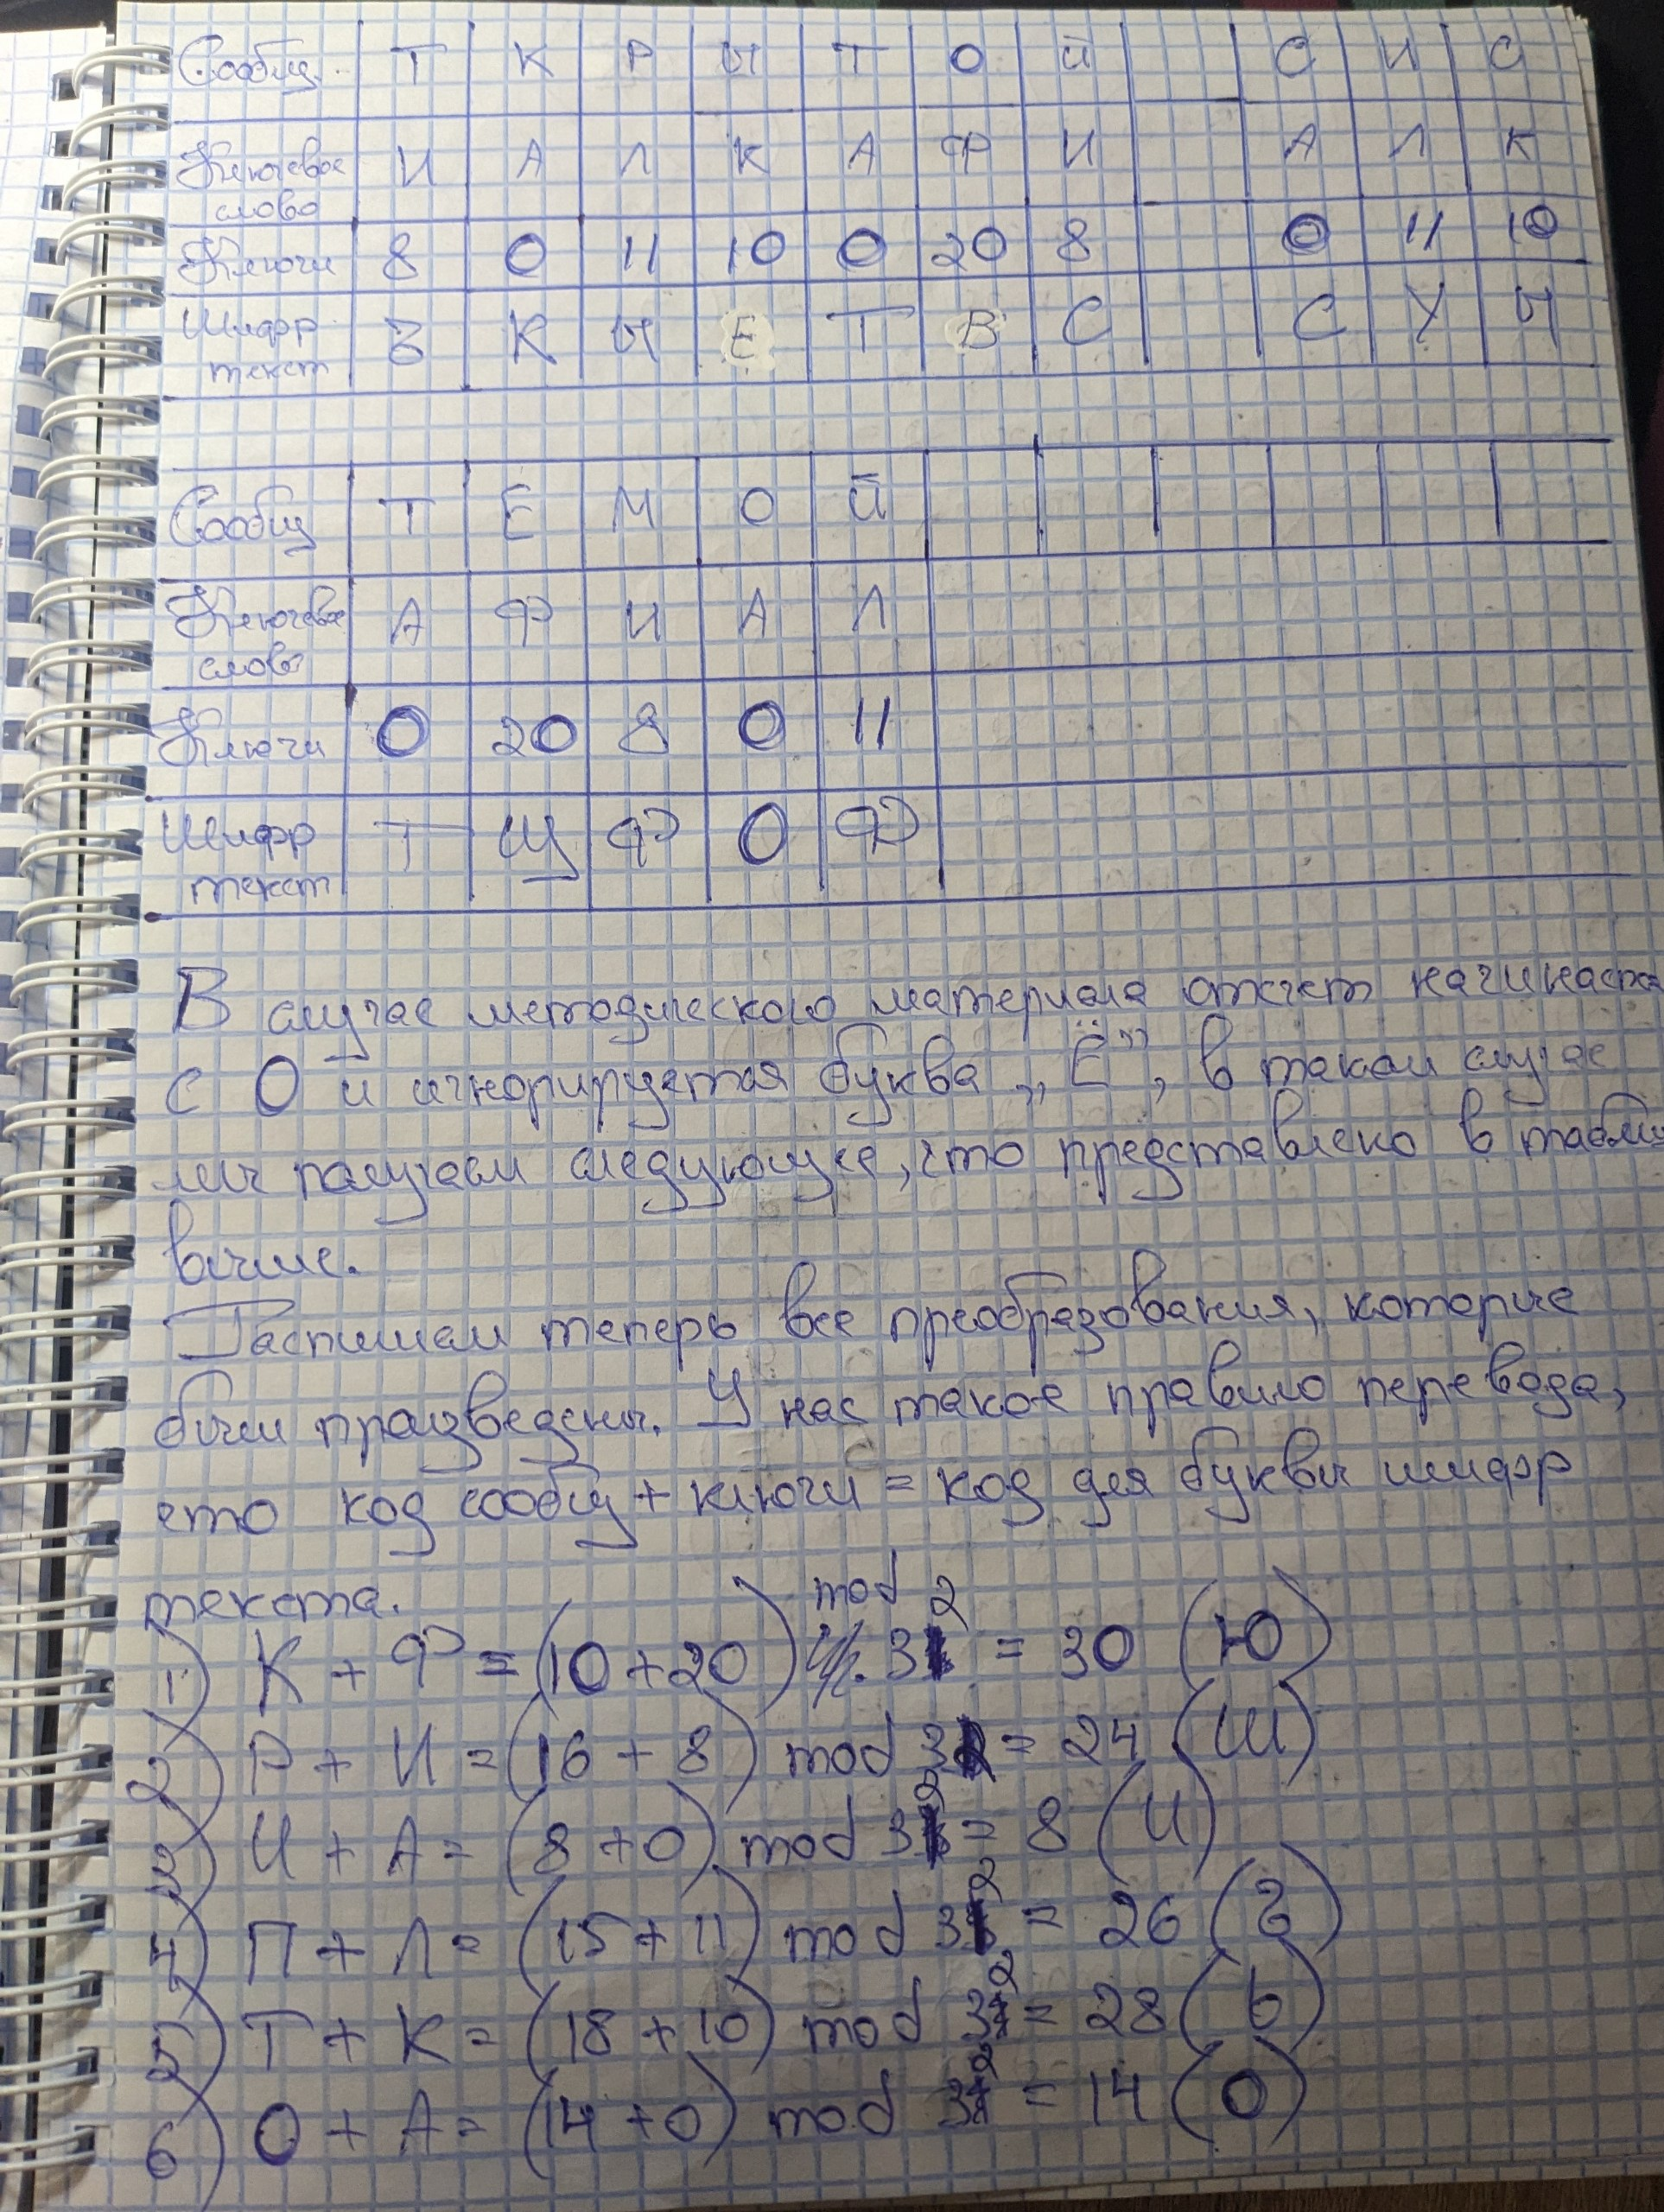 Сообщ. Т К Р Ы Т О Й С И С
Ключевое И А Л К А Ф И А Л К
слово
Ключи 8 0 11 10 0 20 8 0 11 10
Шифр Ъ К Ы Е Т В С С У Ы
текст
Сообщ Т Е М О Й
Ключевое А Ф И А Л
слово
Ключи 0 20 8 0 11
Шифр Т Щ Ф О Ф
текст
В случае методического материала отсчет начинается
с 0 и игнорируется буква „Ё”, в таком случае
мы получаем следующее, что представлено в таблице
выше.
Распишем теперь все преобразования, которые
были произведены. У нас такое правило перевода,
что код сообщ + ключи = код для буквы шифр
текста.
1) К + Ф = (10 + 20) mod 32 = 30 (Ю)
2) Р + И = (16 + 8) mod 32 = 24 (Ш)
3) И + А = (8 + 0) mod 32 = 8 (И)
4) П + Л = (15 + 11) mod 32 = 26 (Ъ)
5) Т + К = (18 + 10) mod 32 = 28 (Ь)
6) О + А = (14 + 0) mod 32 = 14 (О)